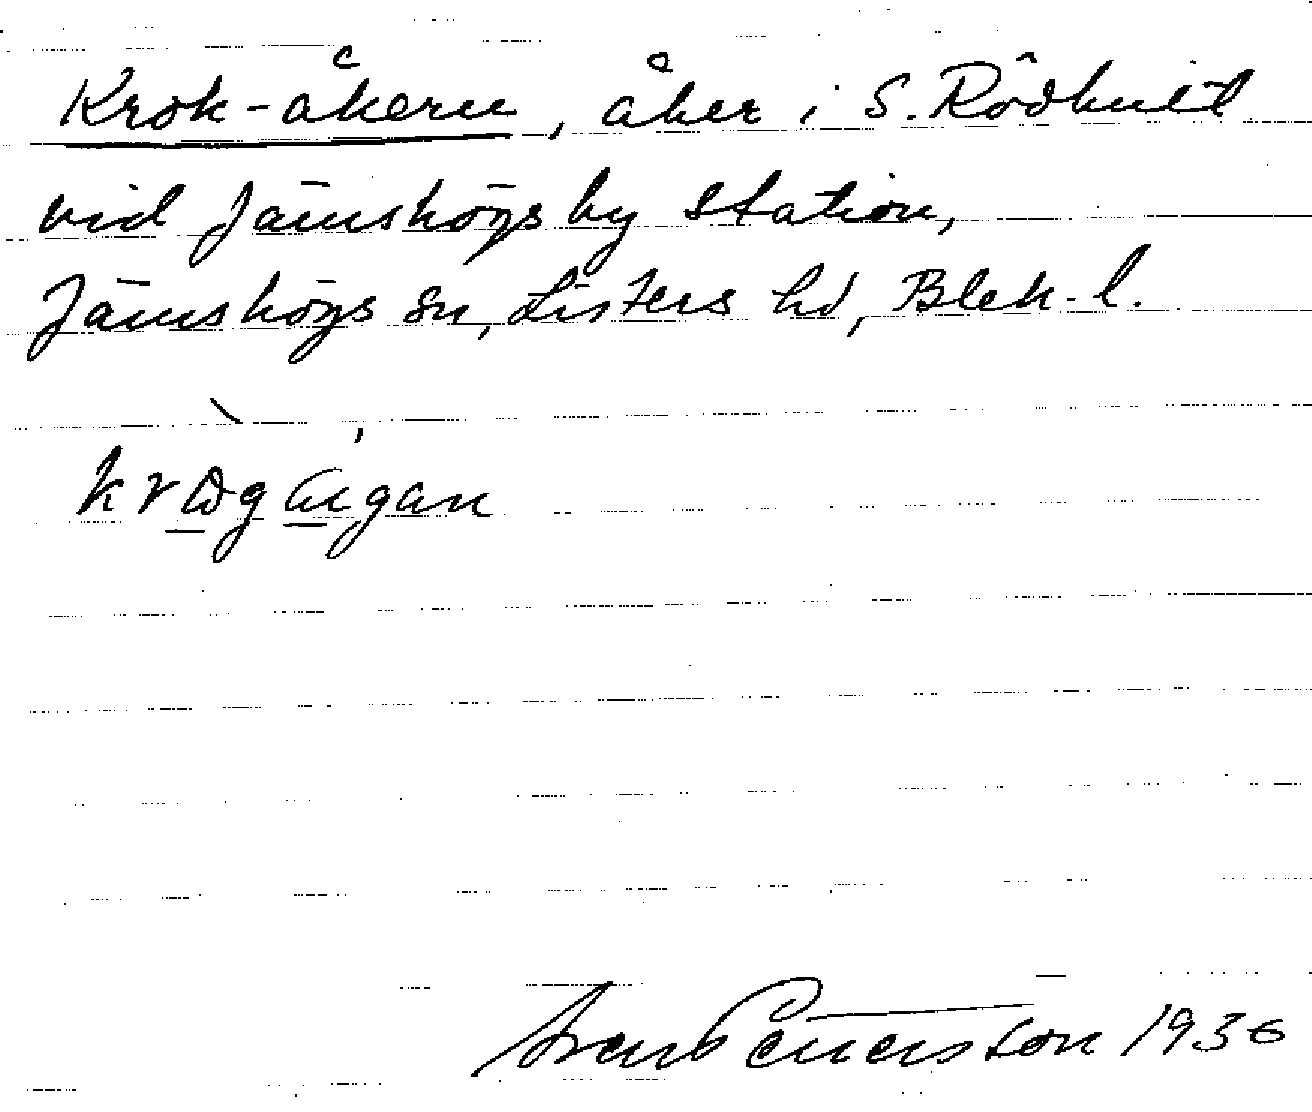 Krok-åkern, åker i S. Rödhult
vid Jämshögs by station,
Jämshögs sn, Listers hd, Blek. l.
Sven Peterson 1936